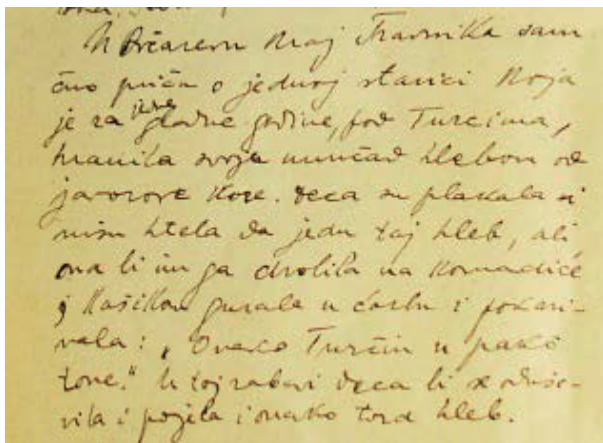 U Brčavem kraj Travnika sam
čuo priču o jednoj starici koja
je za jedne gladne godine, pod Turcima,
hranila svoju unučad hlebom od
javorove kore. Deca su plakala i
nisu htela da jedu taj hleb, ali
ona bi im ga drobila na komadiće
i kašikom gurala u čorbu i pokazi-
vala: „Ovako Turčin u pakô
tone." U toj zabavi deca bi se oduše-
vila i pojela i onako tvrd hleb.